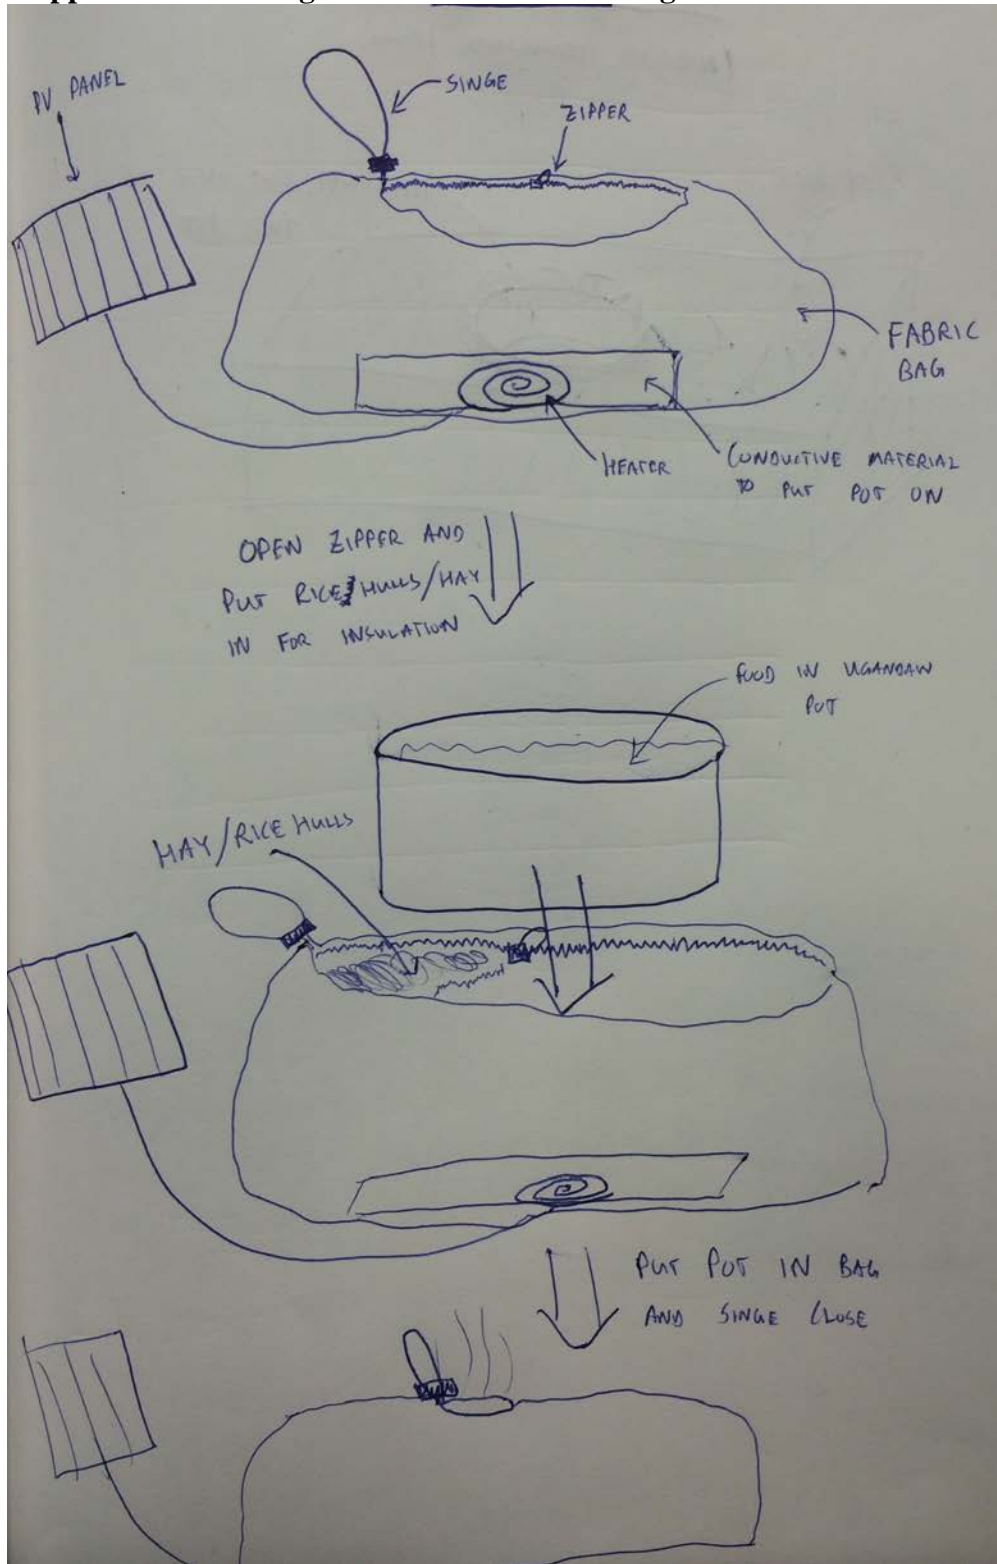 PV PANEL
SINGE
ZIPPER
FABRIC
BAG
HEATER
CONDUCTIVE MATERIAL
TO PUT POT ON
OPEN ZIPPER AND
PUT RICE HULLS/HAY
IN FOR INSULATION
FOOD IN UGANDAN
POT
HAY/RICE HULLS
PUT POT IN BAG
AND SINGE CLOSE